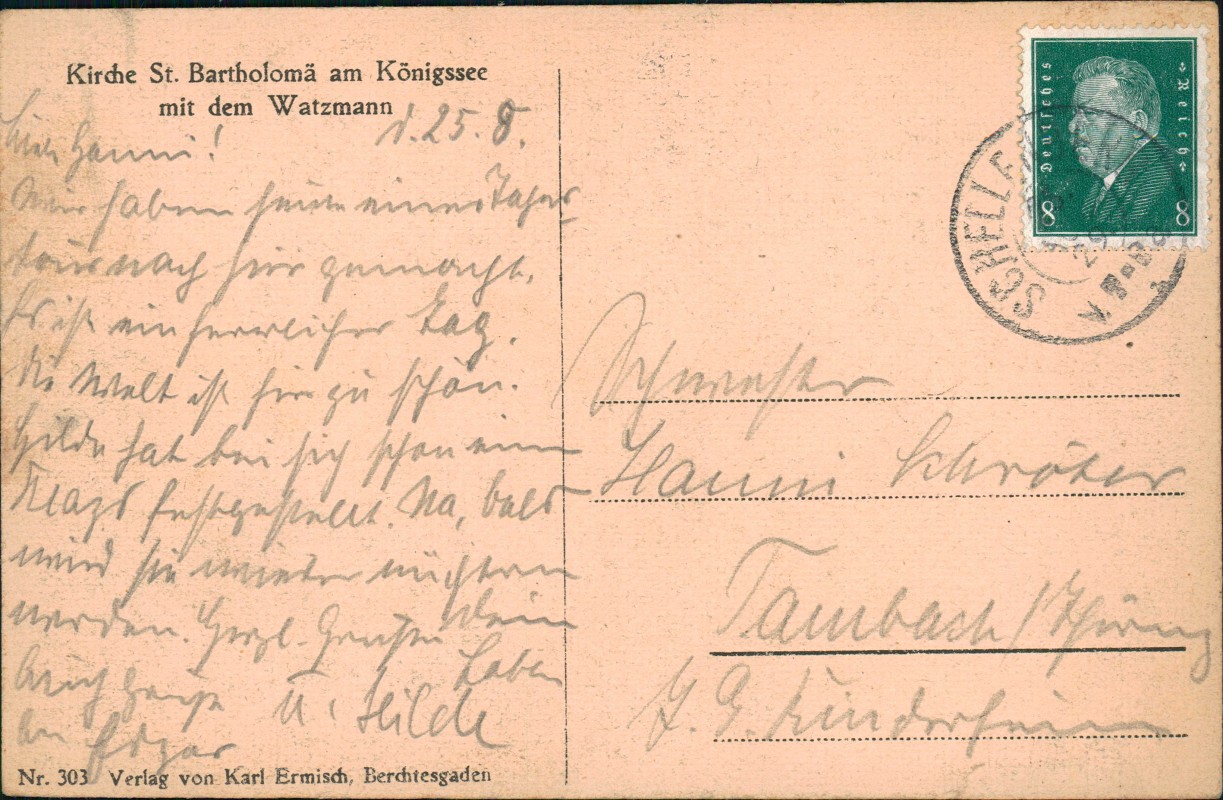 Kirche St. Bartholomä am Königssee
mit dem Watzmann
d. 25. 8.
Hanni!
Wir haben heute eine Tages
tour nach hier gemacht.
Es ist ein herrlicher Tag.
Die Welt ist hier zu schön.
Hilde hat bei sich schon einen
festgestellt. Na, bald
wird sie wieder nüchtern
werden. Herzl. Grüße Dein
u. Hilde
Edgar
Nr. 303 Verlag von Karl Ermisch, Berchtesgaden
Deutsches Reich
8 8
SCHELLE
Schwester
Hanni Schröter
Tambach / Thüring
J. G. Kinderheim